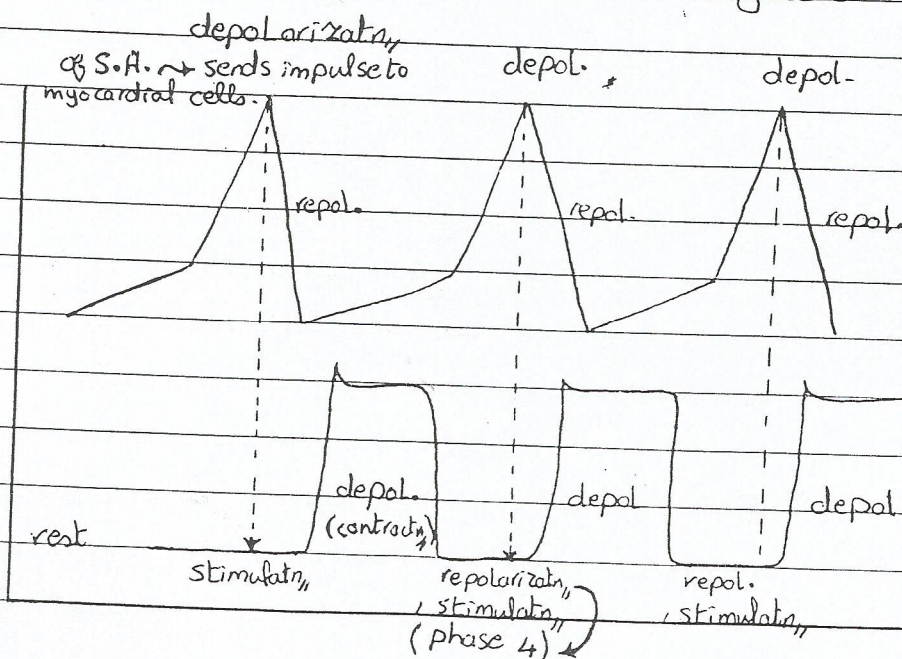 depolarizatn,,
of S.A. ⤳ sends impulse to
myocardial cells.
depol.
depol-
repol.
repol.
repol.
depol.
(contractn,,)
depol
depol
rest
Stimulatn,,
repolarizatn,,
, stimulatn,,
(phase 4)
repol.
, stimulatn,,